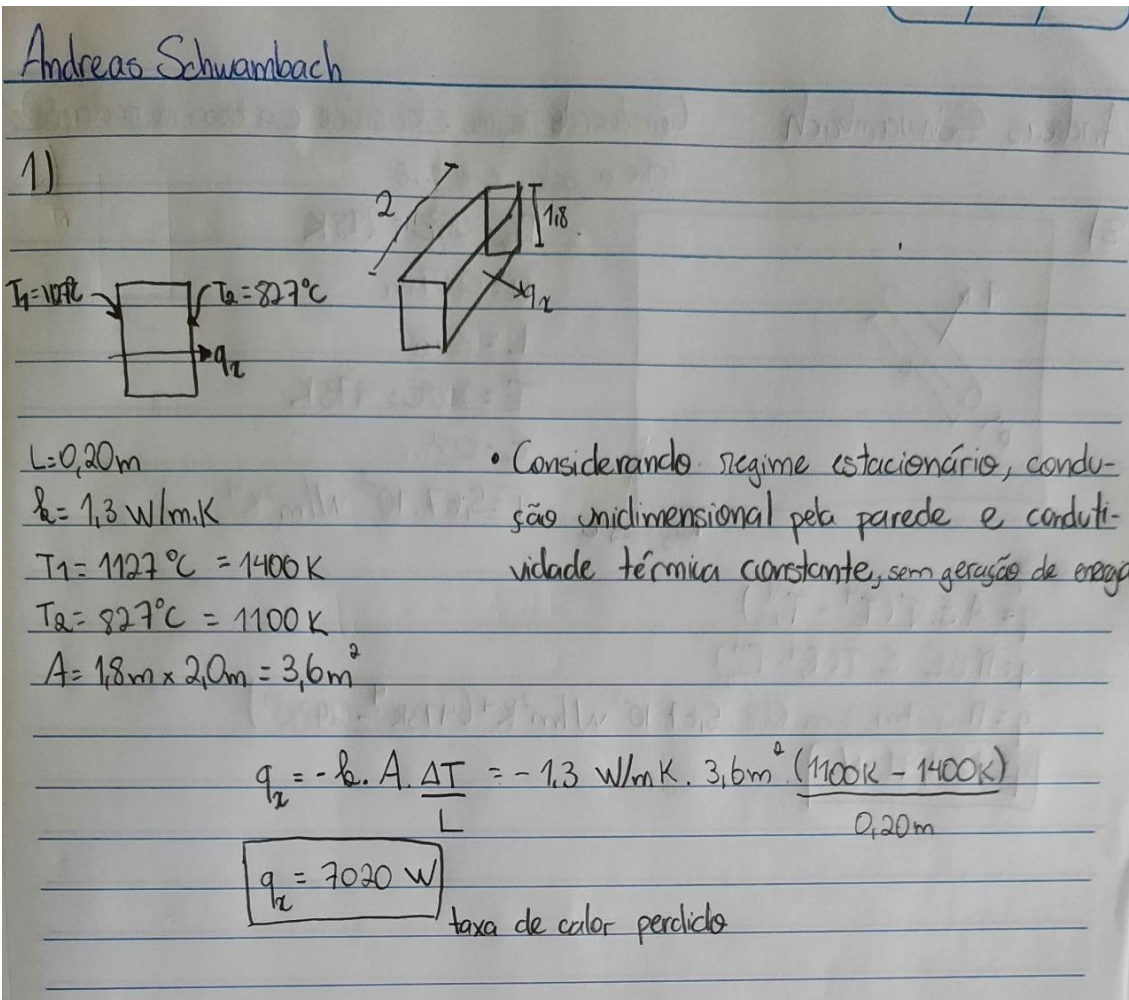 Andreas Schwambach
1)
2
1,8
T1=1127°C
T2=827°C
qx
qx
L=0,20m
k=1,3 W/m.K
T1=1127°C = 1400K
T2=827°C = 1100K
A=1,8m x 2,0m = 3,6m²
• Considerando regime estacionário, condu-
ção unidimensional pela parede e conduti-
vidade térmica constante, sem geração de energia
qx = -k. A. ΔT/L = -1,3 W/mK. 3,6m² (1100K - 1400K)/0,20m
qx = 7020 W
taxa de calor perdido